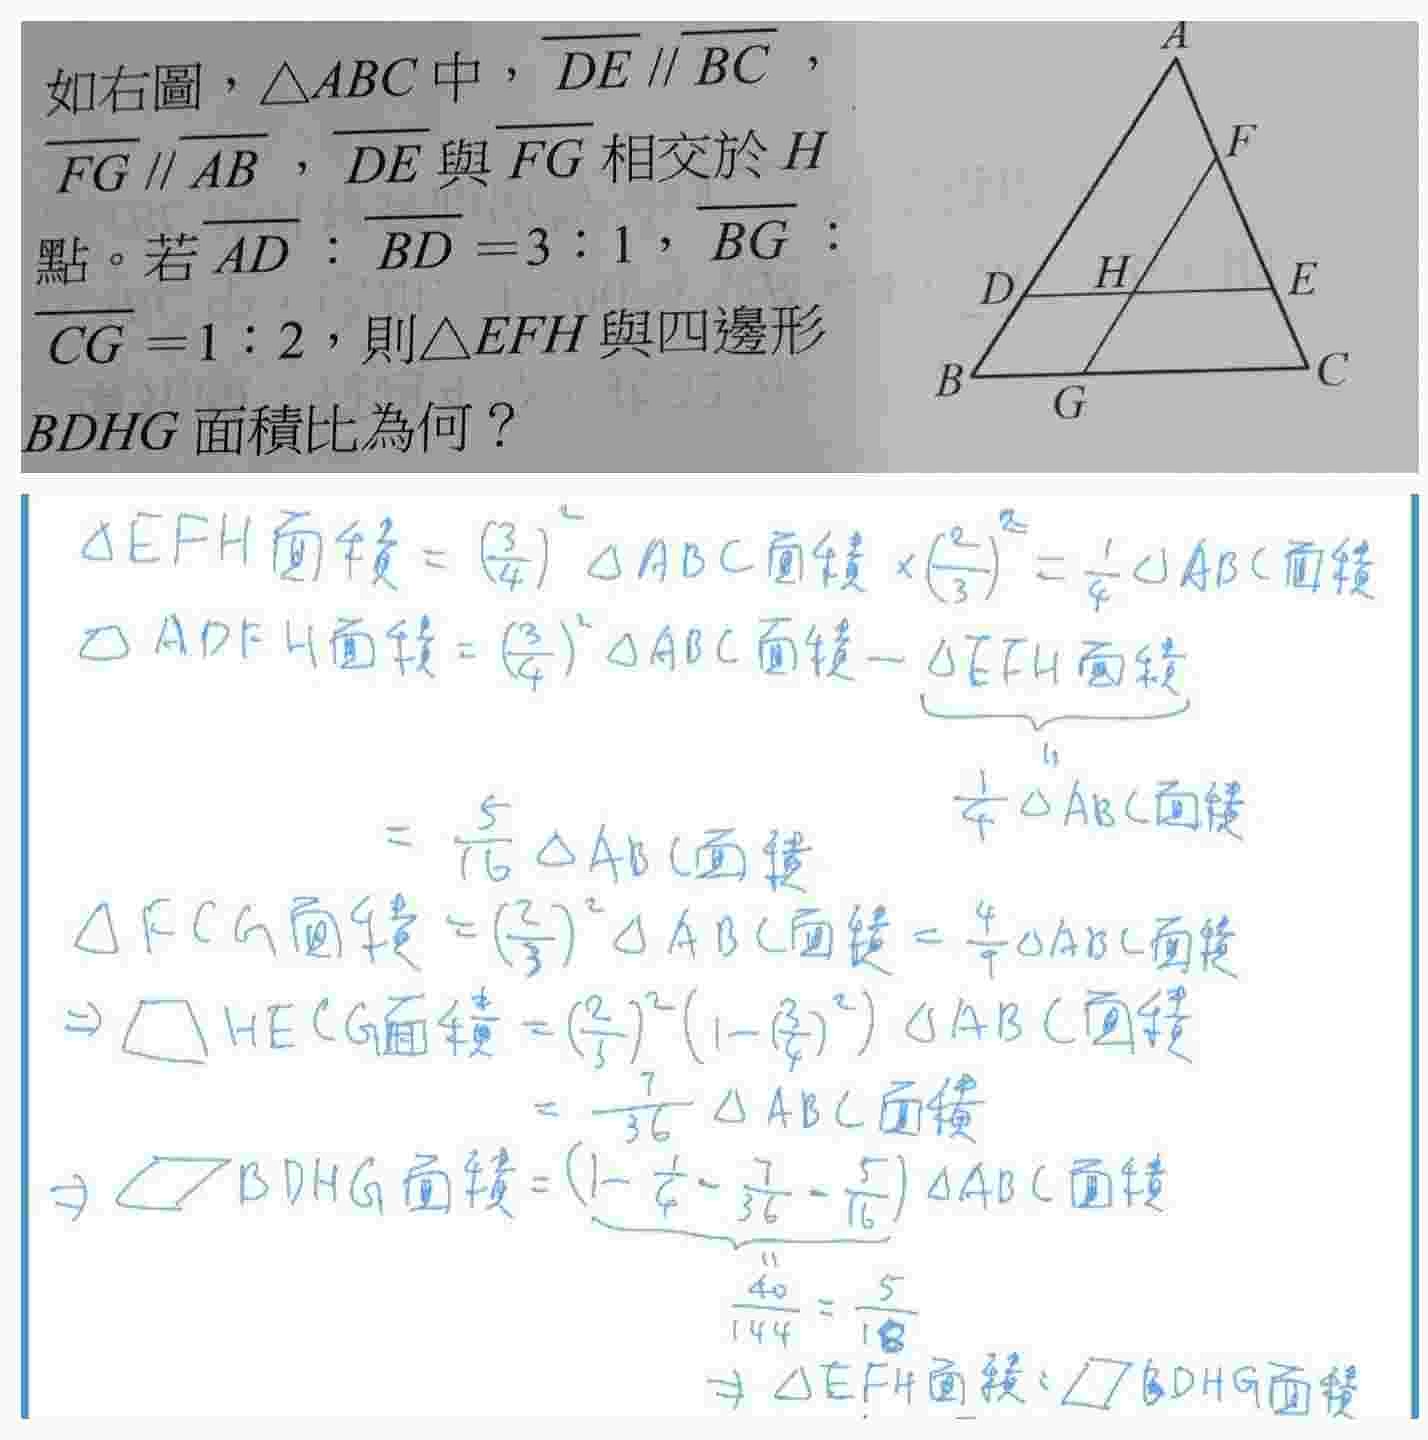 如右圖，△ABC中，DE // BC，
FG // AB，DE與FG相交於H
點。若AD：BD=3：1，BG：
CG=1：2，則△EFH與四邊形
BDHG面積比為何？
A
F
D H E
B G C
△EFH面積 = (3/4)² △ABC面積 × (2/3)² = 1/4 △ABC面積
▱ ADFH面積 = (3/4)² △ABC面積 − △EFH面積
"
1/4 △ABC面積
= 5/16 △ABC面積
△FCG面積 = (2/3)² △ABC面積 = 4/9 △ABC面積
⇒ ⏢HECG面積 = (2/3)² (1−(3/4)²) △ABC面積
= 7/36 △ABC面積
⇒ ▱BDHG面積 = (1 − 1/4 − 7/36 − 5/16) △ABC面積
"
40/144 = 5/18
⇒ △EFH面積：▱BDHG面積